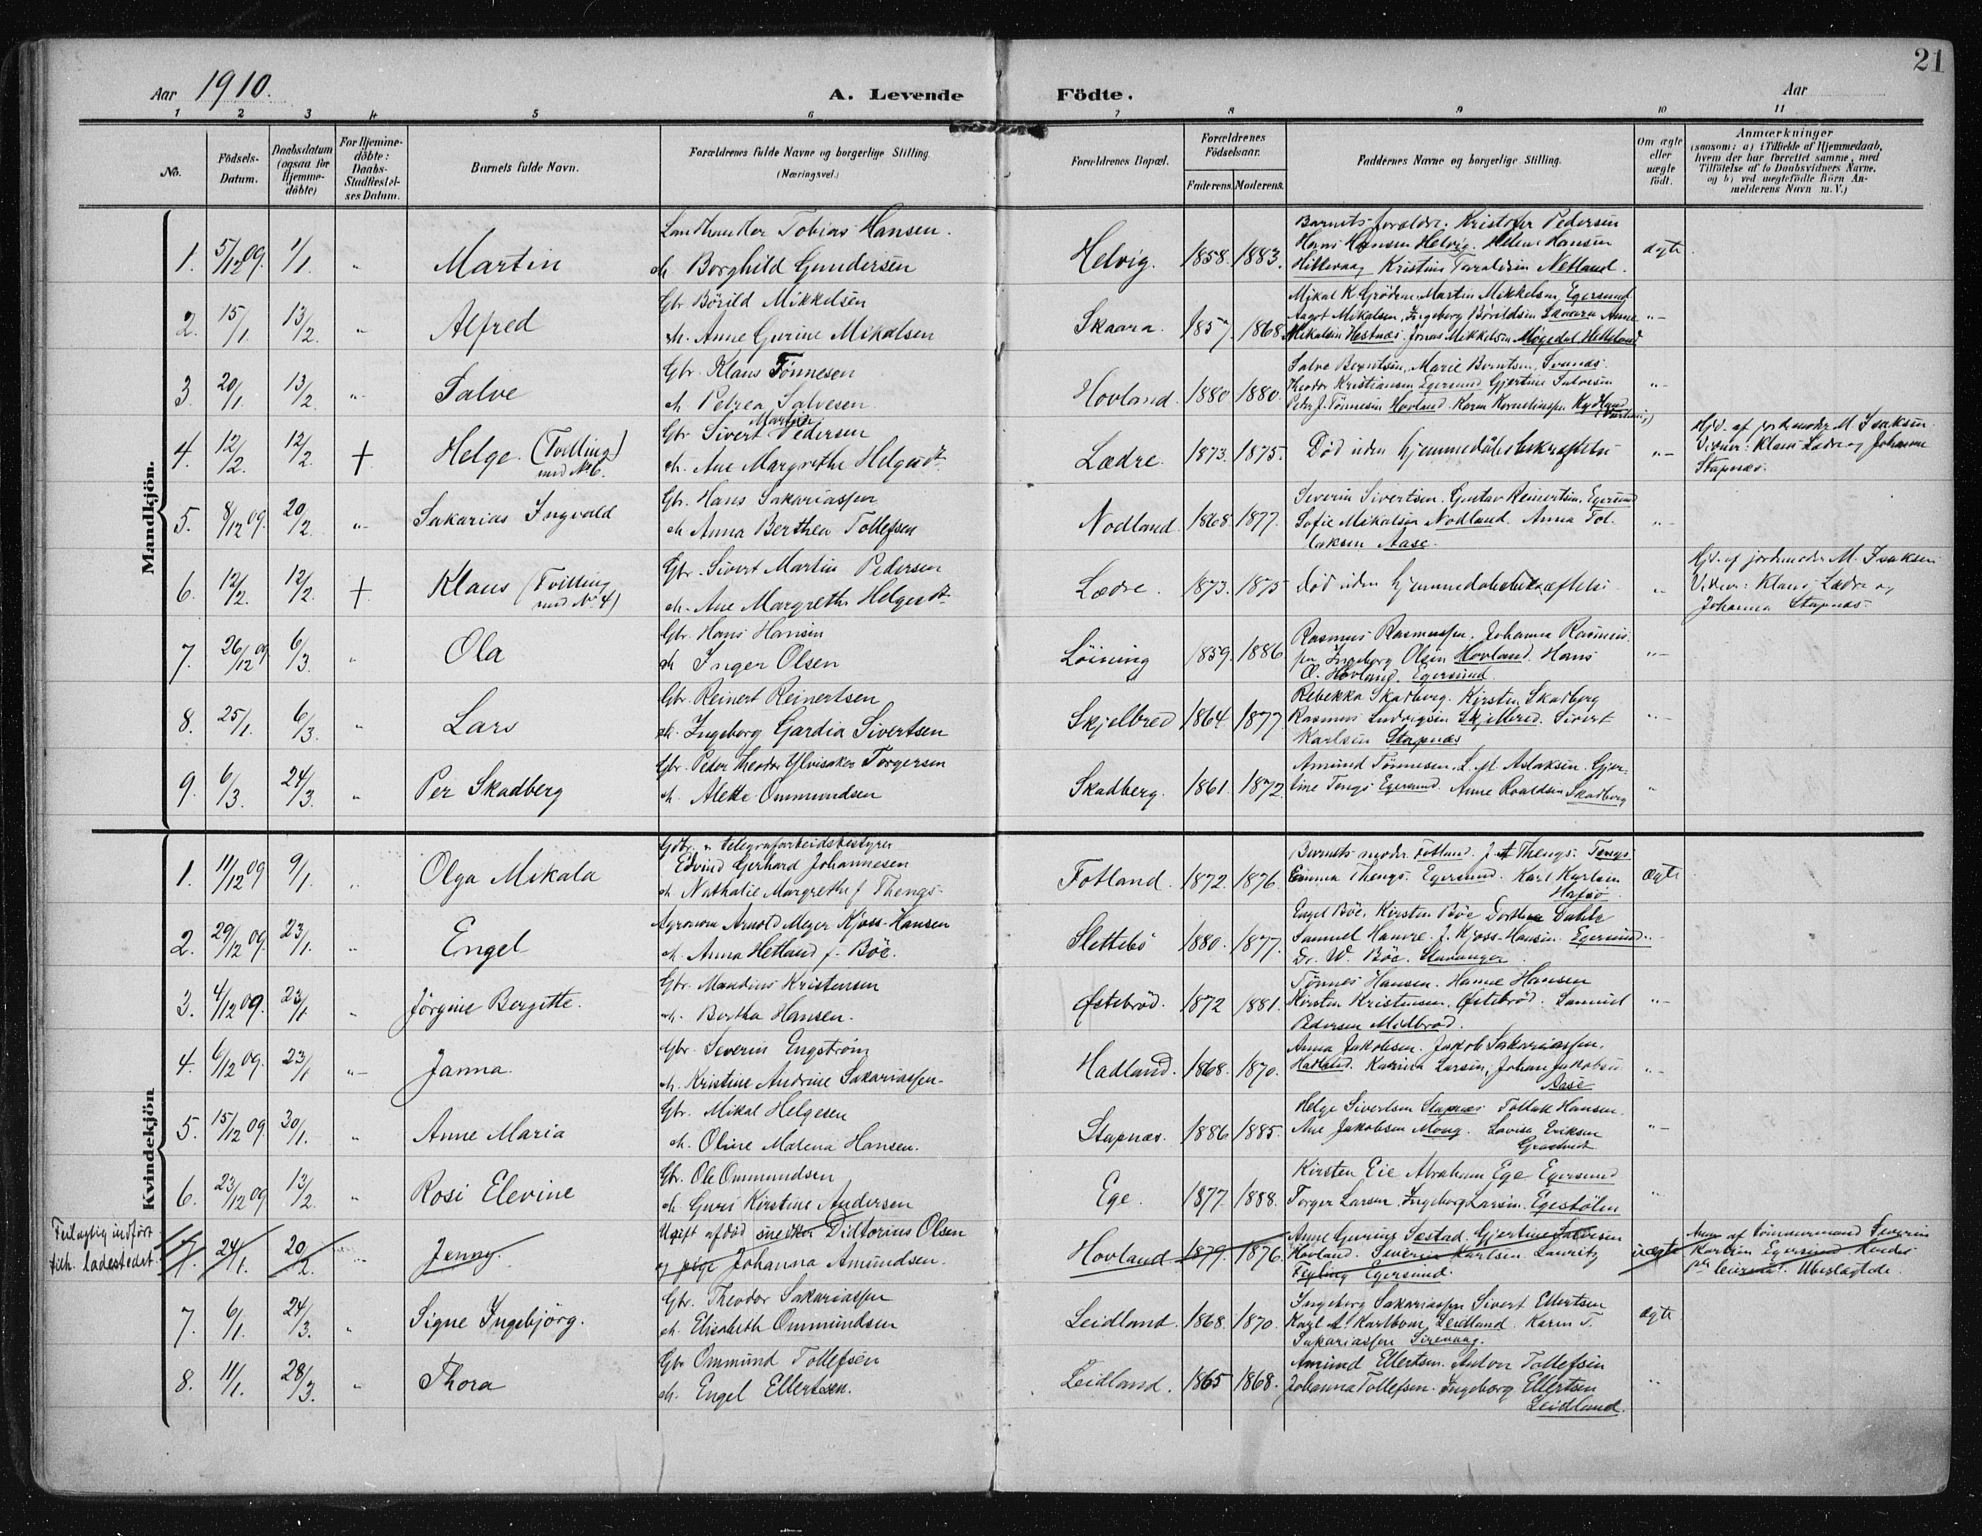 21
Aar 1910.
A. Levende Födte.
Aar
1 2 3 4 5 6 7 8 9 10 11
No.
Födsels-Datum.
Daabsdatum (ogsaa for Hjemmedöbte)
For Hjemmedöbte: Daabs-Stadfæstelses Datum.
Barnets fulde Navn.
Forældrenes fulde Navne og borgerlige Stilling (Næringsvei.)
Forældrenes Bopæl.
Forældrenes Födselsaar.
Faderens. Moderens.
Faddernes Navne og borgerlige Stilling.
Om ægte eller uægte födt.
Anmærkninger
(saasom: a) i Tilfælde af Hjemmedaab, hvem der har forrettet samme, med Tilföielse af to Daabsvidners Navne, og b) ved uægtefödte Börn Anmelderens Navn m. V.)
Mandkjön.
1. 5/12 09. 1/1 " Martin
Tobias Hansen.
Borghild Gundersen
Helvig. 1858. 1883.
Barnets forældre. Kristofer Pedersen
Hans Hansen Helvig. Helene Hansen
Hillevaag Kristine Taraldsen Netland.
ægte
2. 15/1 13/2 " Alfred
Gbr. Börild Mikkelsen
Anne Gurine Mikalsen
Skaara. 1857. 1868
Mikal K. Grödem, Martin Mikkelsen, Egersund
Aagot Mikalsen, Ingeborg Börildsen Skaara Anne
Mikalsen Hestnæs. Jonas Mikkelsen Møgedal Hetland
3 20/1 13/2 " Salve
Gbr. Klaus Tönnesen
Petrea Salvesen
Hovland. 1880 1880.
Salve Berntsen, Marie Berntsen, Svanæs.
Theodor Kristiansen Egersund Gjertine Salvesen
Peter J. Tönnesen Hovland. Karen Korneliussen
4. 12/2 12/2 + Helge. (Tvilling med No 6.
Gbr. Sivert Martin Pedersen
Ane Margrethe Helgesdt.
Lædre. 1873. 1875.
Död uden hjemmedaabsbekræftelse
Hjd. af jordmoder M. Isaksen.
Vidner: Klaus Lædre og Johanna
Stapnæs.
5. 8/12 09. 20/2 " Sakarias Ingvald
Gbr. Hans Sakariassen
Anna Berthea Tollefsen
Nodland. 1868. 1877.
Severin Sivertsen. Gustav Reinertsen. Egersund
Sofie Mikalsen Nodland. Anna Tol-
laksen Aase.
6. 12/2. 12/2. + Klaus (Tvilling med No 4)
Gbr. Sivert Martin Pedersen
Ane Margrethe Helgesdt.
Lædre. 1873. 1875
Död uden hjemmedaabsbekræftelse
Hjd. af jordmoder M. Isaksen
Vidner: Klaus Lædre og
Johanna Stapnæs.
7. 26/12 09 6/3 " Ola
Gbr. Hans Hansen
Inger Olsen
Löining 1859. 1886
Rasmus Rasmussen. Johanna Rasmus-
sen Ingeborg Olsen Hovland. Hans
O. Hovland, Egersund
8. 25/1 6/3. " Lars
Gbr. Reinert Reinertsen
Ingeborg Gardia Sivertsen
Skjelbred 1864 1877
Rebekka Skadberg. Kirsten Skadberg
Rasmus Ludvigsen Skjelbred. Sivert
Karlsen Stapnæs
9. 6/3. 24/3. " Per Skadberg
Gbr. Peder Theodor Ylvisaker Torgersen
Alette Ommundsen
Skadberg. 1861. 1872.
Amund Tönnesen. L. M. Aslaksen. Gjer-
tine Tengs Egersund. Anne Roaldsen Skadberg
Kvindekjön
1. 11/12 09 9/1. " Olga Mikala
Gdbr. & telegrafarbeidsbestyrer
Edvind Gerhard Johannesen
Nathalie Margrethe f Thengs.
Totland. 1872. 1876.
Barnets moder Totland. J. A Thengs. Tengs
Emma Thengs. Egersund. Karl Karlsen
Hafsö
ægte
2. 29/12 09. 23/1. " Engel
Agronom Arnold Meyer Kjoss-Hansen
Anna Hetland f. Böe.
Slettebö 1880. 1877.
Engel Böe. Kirsten Böe Dorthea Dahle
Samuel Hanvre. J. Kjoss-Hansen. Egersund
Dr. W. Böe. Stavanger
3. 4/12 09. 23/1 " Jörgine Bergitte.
Gbr. Mandius Kristensen
Bertha Hansen.
Østebröd. 1872 1881.
Tönnes Hansen. Hanne Hansen
Kirsten Kristensen. Østebröd. Samuel
Pedersen Midbröd.
4. 6/12 09. 23/1 " Janna.
Gbr. Severin Engström
Kristine Andrine Sakariassen.
Hadland. 1868. 1870.
Anna Jakobsen. Jakob Sakariassen.
Hadland. Karina Larsen, Johan Jakobsen
Aase
5. 15/12 09. 30/1. " Anne Maria
Gbr. Mikal Helgesen
Oline Malena Hansen.
Stapnæs. 1886 1885.
Helge Sivertsen Stapnæs Tollak Hansen.
Ane Jakobsen Mong. Lovise Eriksen
6. 23/12 09 13/2 " Rosi Elevine
Gbr. Ole Ommundsen
Guri Kirstine Andersen
Ege. 1877. 1888.
Kirsten Eie Abraham Ege Egersund
Torger Larsen, Ingeborg Larsen. Egestölen
Feilagtig indfört
tilh. ladestedet.
7. 24/1. 20/2. Jenny.
Ugift afdöd snedker Didtorius Olsen
og pige Johanna Amundsen.
Hovland 1879. 1876.
Anne Gurine Sæstad. Gjertine Salvesen
Hovland. Severin Karlsen. Lauritz
Feyling Egersund.
uægte
Anm af tömmermand Severin
Karlsen Egersund
7. 6/1 24/3. " Signe Ingebjörg.
Gbr. Theodor Sakariassen
Elisabeth Ommundsen
Leidland. 1868. 1870.
Ingeborg Sakariassen Sivert Ellertsen
Karl A. Karlsen, Leidland. Karen T.
Sakariassen Sirevaag.
ægte
8. 11/1. 28/3 " Thora
Gbr Ommund Tollefsen
Engel Ellertsen.
Leidland. 1865 1868.
Amund Ellertsen. Anton Tollefsen
Johanna Tollefsen. Ingeborg Ellertsen
Leidland.